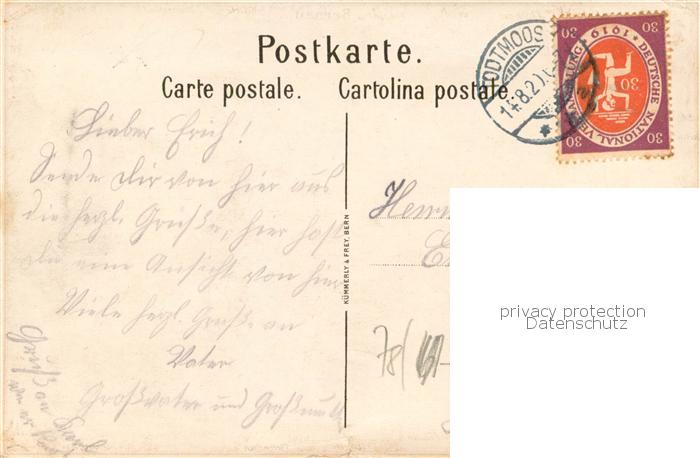 Postkarte.
Carte postale. Cartolina postale.
TODTMOOS
14.8.20
DEUTSCHE NATIONAL-VERSAMMLUNG 1919
30 30
30
30 30
Lieber Erich!
Sende Dir von hier aus
die herzl. Grüße, hier hast
Du eine Ansicht von hier
Viele herzl. Grüße an
Vater
Großvater und Großmutt
Gruß an
KÜMMERLY & FREY, BERN
Herrn
78/
privacy protection
Datenschutz